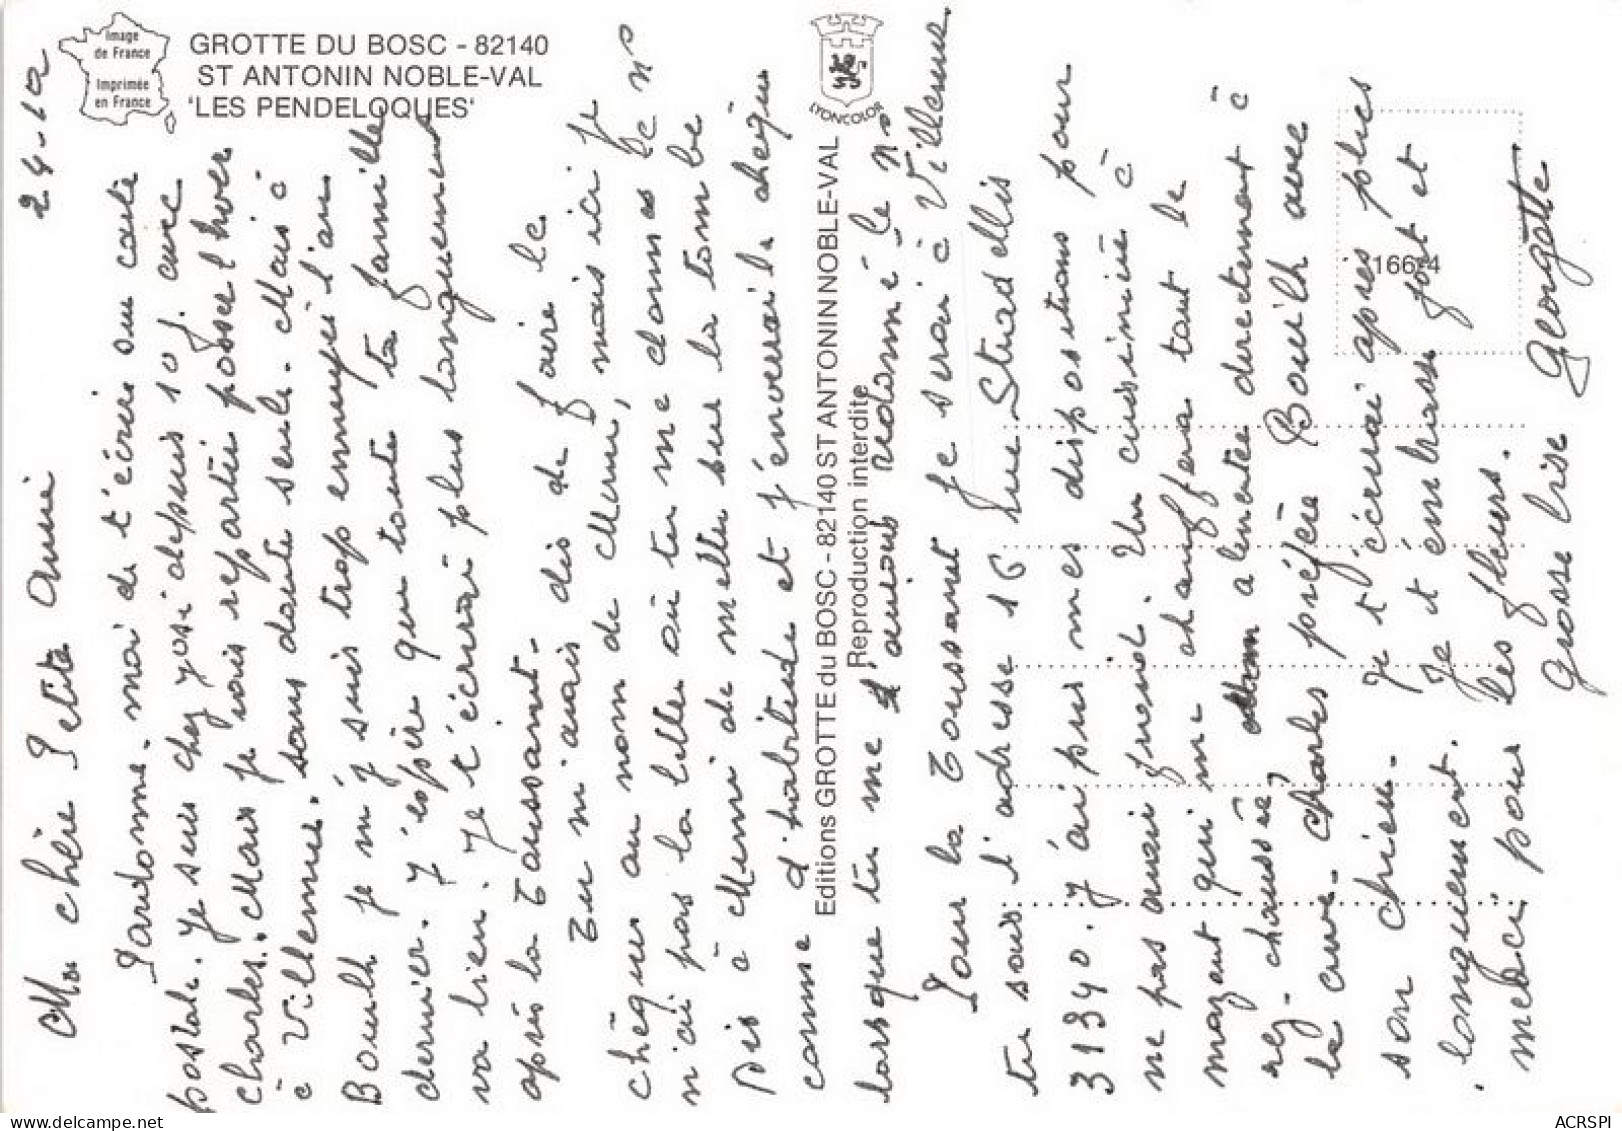 Image
de France
Imprimée
en France
GROTTE DU BOSC - 82140
ST ANTONIN NOBLE-VAL
'LES PENDELOQUES'
LYONCOLOR
Editions GROTTE du BOSC - 82140 ST ANTONIN NOBLE-VAL
Reproduction interdite
24-10
Ma chère Petite Amie
Pardonne-moi de t'écrire sur carte
postale. Je suis chez Yosi depuis 10 j. avec
Charles. Mais je vais repartir passer l'hiver
à Villemur. sans doute seule. Mais à
Bouilh je m'y suis trop ennuyée l'an
dernier. J'espère que toute ta famille
va bien. Je t'écrirai plus longuement
après la Toussaint.
Tu m'avais dis de faire le
chèque au nom de Mimi, mais ici je
n'ai pas la lettre où tu me donnes le n°
Dis à Mimi de mettre sur la tombe
comme d'habitude et j'enverrai le chèque
lorsque tu me aurais redonné le n°
Pour la Toussaint je serai à Villemur.
tu sais l'adresse 16 rue Stradellis
31340. J'ai pris mes dispositions pour
ne pas avoir froid. Un cuisinière à
mazout qui me chauffera tout le
rez-chaussée alimentée directement à
la cuve. Charles préfère Bouilh avec
son chien. Je t'écrirai après plus
longuement. Je t'embrasse fort et
merci pour les fleurs.
Grosse bise Georgette
16614
ma-collection.delcampe.net
ACRSPI